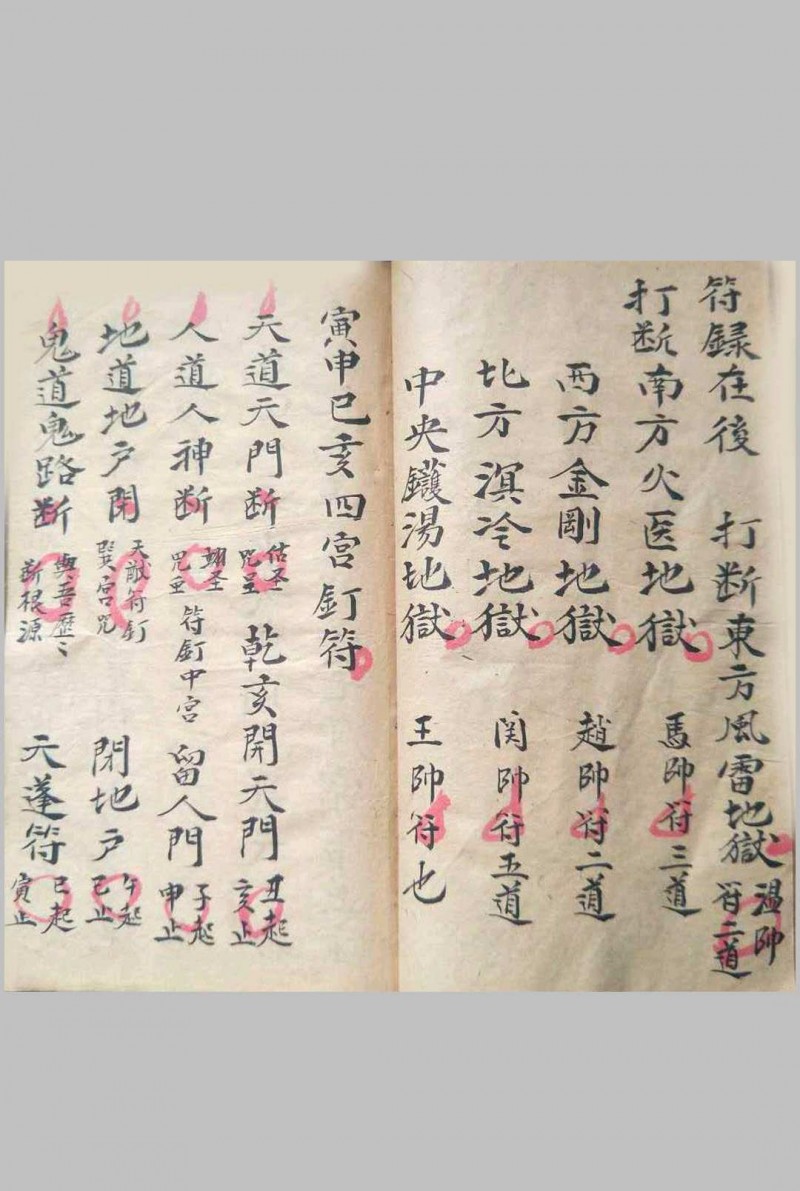 符録在後 打断東方風雷地獄 温帥符二道
打断南方火医地獄 馬帥符三道
西方金剛地獄 趙帥符二道
北方溟冷地獄 関帥符五道
中央鑊湯地獄 王帥符也
寅申巳亥四宮釘符
天道天門断 乾亥開天門 丑起亥止
人道人神断 符釘中宮 留人門 子起申止
地道地户閉 天猷符釘 閉地户 午起巳止
鬼道鬼路断 與吾歷〻断根源 天蓬符 巳起寅止